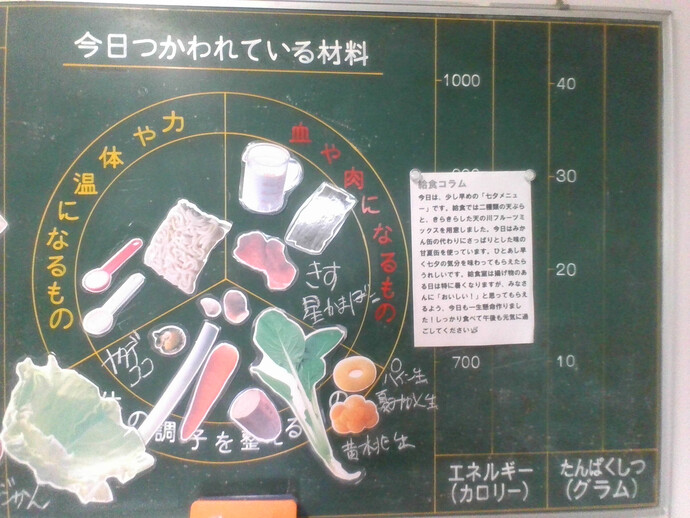 今日つかわれている材料
力や体温になるもの
血や肉になるもの
の調子を整える
きす
星かまぼこ
ナタデ
ココ
パイン缶
黄桃缶
かん
1000
700
40
30
20
10
エネルギー
(カロリー)
たんぱくしつ
(グラム)
給食コラム
今日は、少し早めの「七夕メニュ
ー」です。給食では二種類の天ぷら
と、きらきらした天の川フルーツミ
ックスを用意しました。今日はみか
ん缶の代わりにさっぱりとした味の
甘夏缶を使っています。ひとあし早
く七夕の気分を味わってもらえたら
うれしいです。給食室は揚げ物のあ
る日は特に暑くなりますが、みなさ
んに「おいしい!」と思ってもらえ
るよう、今日も一生懸命作りまし
た!しっかり食べて午後も元気に過
ごしてください